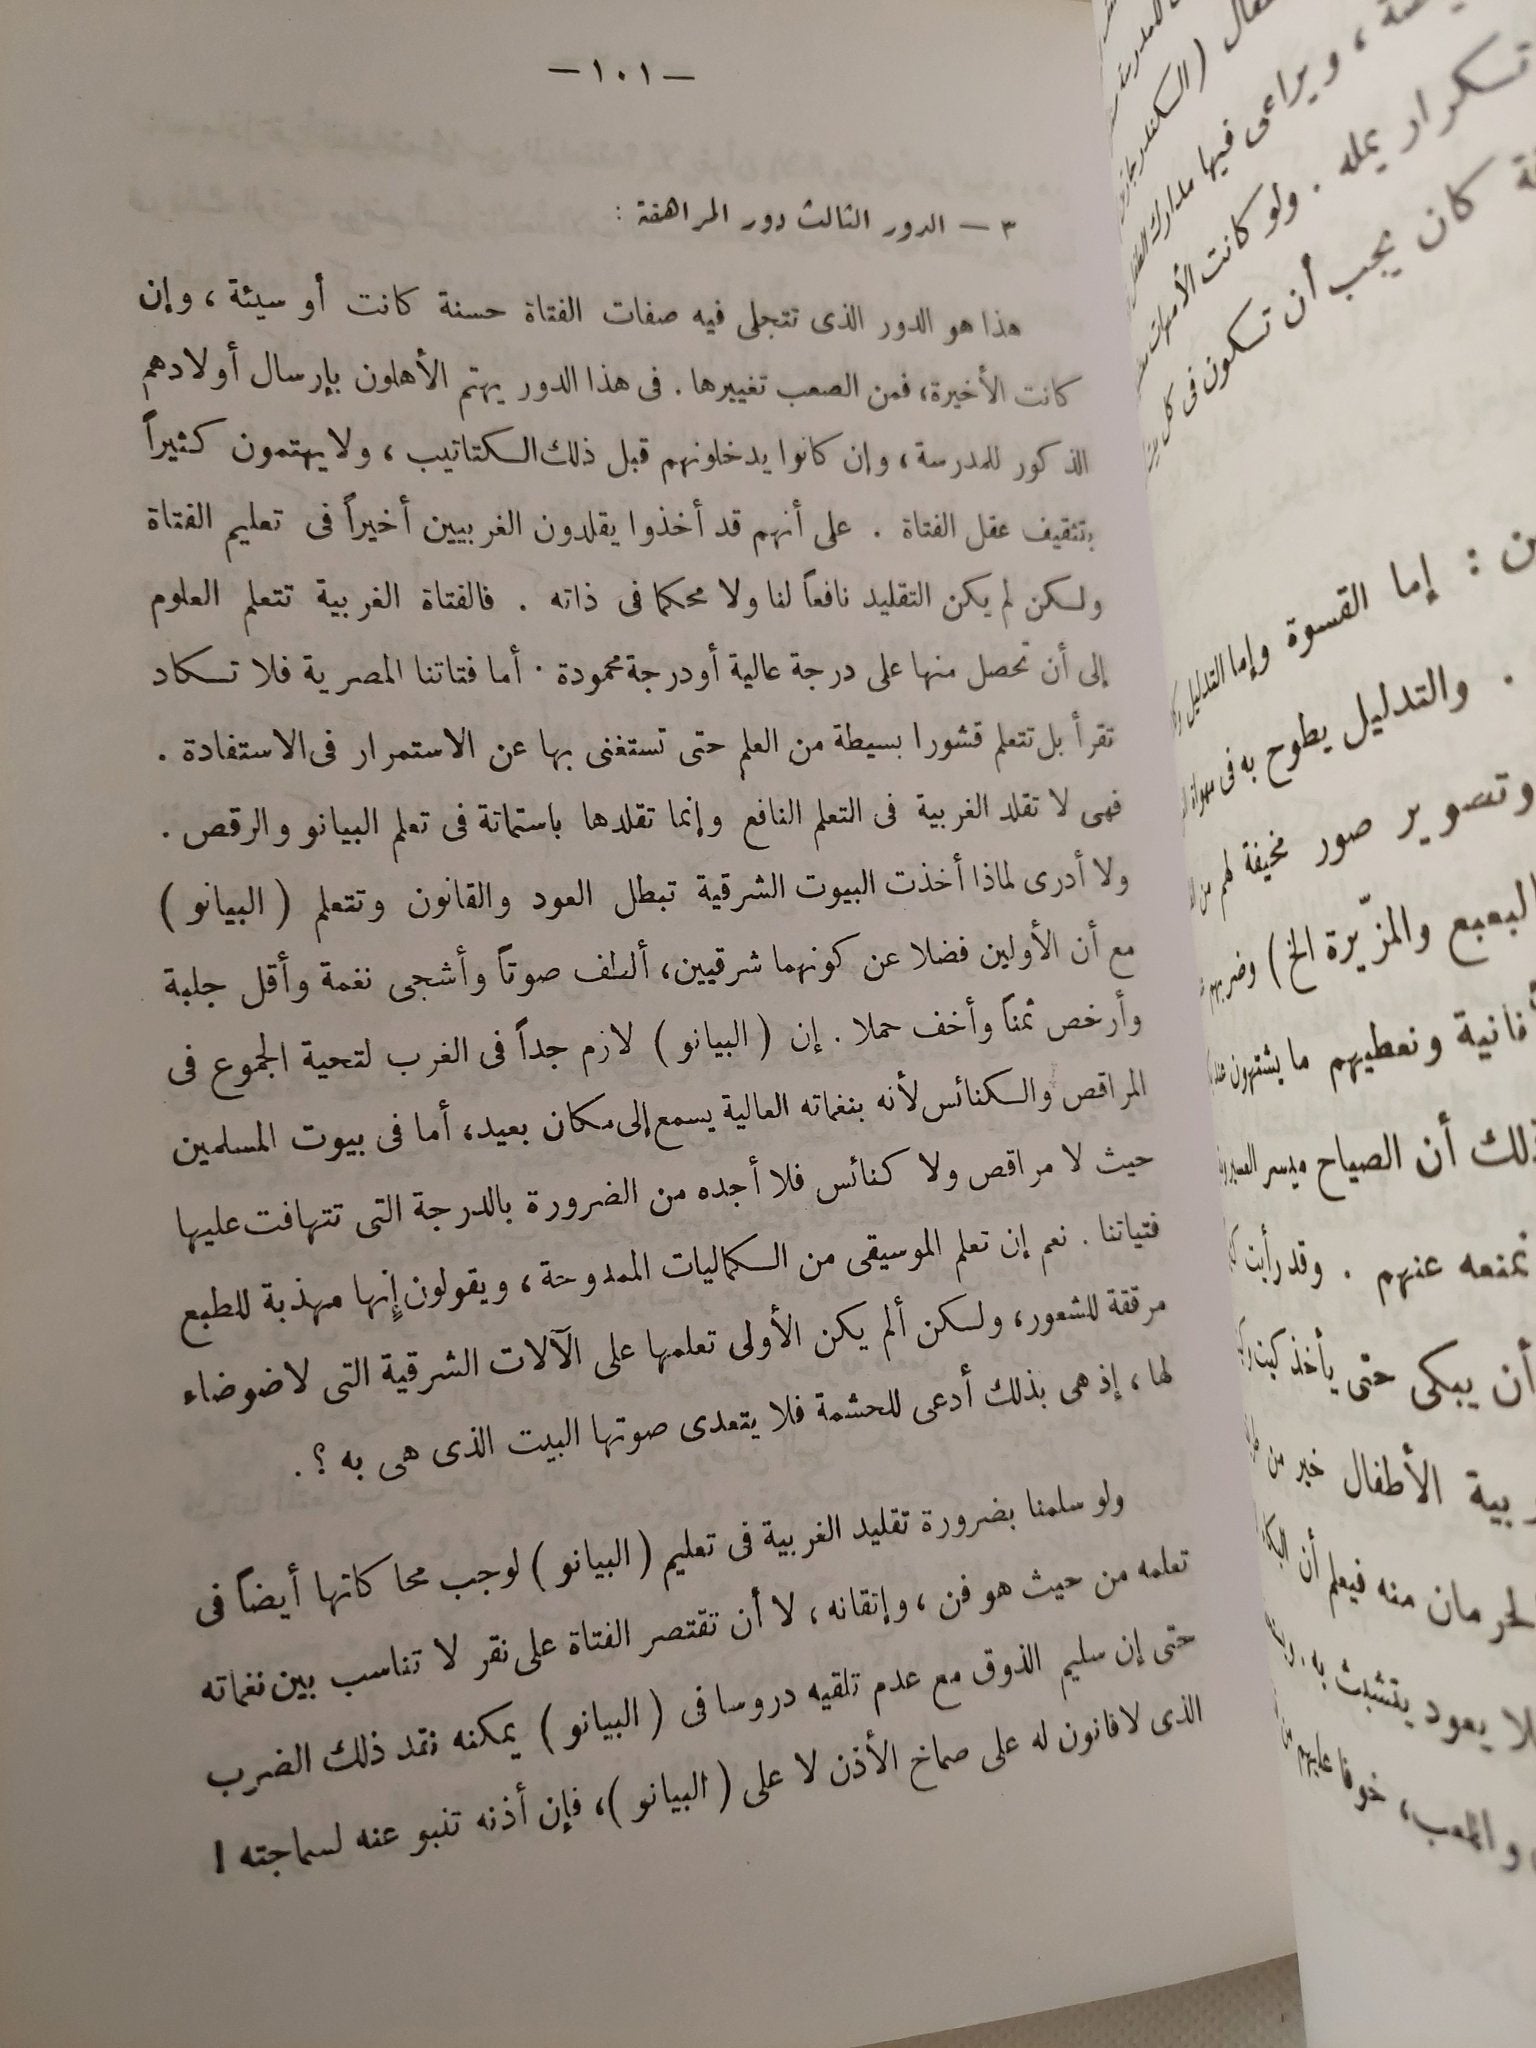 — ١٠١ —
٣ — الدور الثالث دور المراهقة :
هذا هو الدور الذى تتجلى فيه صفات الفتاة حسنة كانت أو سيئة ، وإن
كانت الأخيرة، فمن الصعب تغييرها . فى هذا الدور يهتم الأهلون بإرسال أولادهم
الذكور للمدرسة ، وإن كانوا يدخلونهم قبل ذلك الكتاتيب ، ولا يهتمون كثيراً
بتثقيف عقل الفتاة . على أنهم قد أخذوا يقلدون الغربيين أخيراً فى تعليم الفتاة
ولكن لم يكن التقليد نافعاً لنا ولا محكما فى ذاته . فالفتاة الغربية تتعلم العلوم
إلى أن تحصل منها على درجة عالية أو درجة محمودة . أما فتاتنا المصرية فلا تكاد
تقرأ بل تتعلم قشورا بسيطة من العلم حتى تستغنى بها عن الاستمرار فى الاستفادة .
فهى لا تقلد الغربية فى التعلم النافع وإنما تقلدها باستماتة فى تعلم البيانو والرقص .
ولا أدرى لماذا أخذت البيوت الشرقية تبطل العود والقانون وتتعلم ( البيانو )
مع أن الأولين فضلا عن كونهما شرقيين، ألطف صوتاً وأشجى نغمة وأقل جلبة
وأرخص ثمناً وأخف حملا . إن ( البيانو ) لازم جداً فى الغرب لتحية الجموع فى
المراقص والكنائس لأنه بنغماته العالية يسمع إلى مكان بعيد، أما فى بيوت المسلمين
حيث لا مراقص ولا كنائس فلا أجده من الضرورة بالدرجة التى تتهافت عليها
فتياتنا . نعم إن تعلم الموسيقى من الكماليات الممدوحة ، ويقولون إنها مهذبة للطبع
مرققة للشعور، ولكن ألم يكن الأولى تعلمها على الآلات الشرقية التى لا ضوضاء
لها ، إذ هى بذلك أدعى للحشمة فلا يتعدى صوتها البيت الذى هى به ؟ .
ولو سلمنا بضرورة تقليد الغربية فى تعليم ( البيانو ) لوجب محاكاتها أيضاً فى
تعلمه من حيث هو فن ، وإتقانه ، لا أن تقتصر الفتاة على نقر لا تناسب بين نغماته
حتى إن سليم الذوق مع عدم تلقيه دروسا فى ( البيانو ) يمكنه نقد ذلك الضرب
الذى لا قانون له على صماخ الأذن لا على ( البيانو )، فإن أذنه تنبو عنه لسماجته !
، ويراعى فيها مدارك
تكرار يمله . ولو كانت الأمهات
كان يجب أن تكون فى كل
: إما القسوة وإما التدليل
. والتدليل يطوح به فى مهواة
وتصوير صور مخيفة لهم من
البعبع والمزّيرة الخ ) وضربهم
ونعطيهم ما يشتهون
ذلك أن الصياح ميسر
نمنعه عنهم . وقد رأيت
أن يبكى حتى يأخذ
الأطفال خير من
منه فيعلم أن
يعود يتشبث به .
، خوفا عليهم